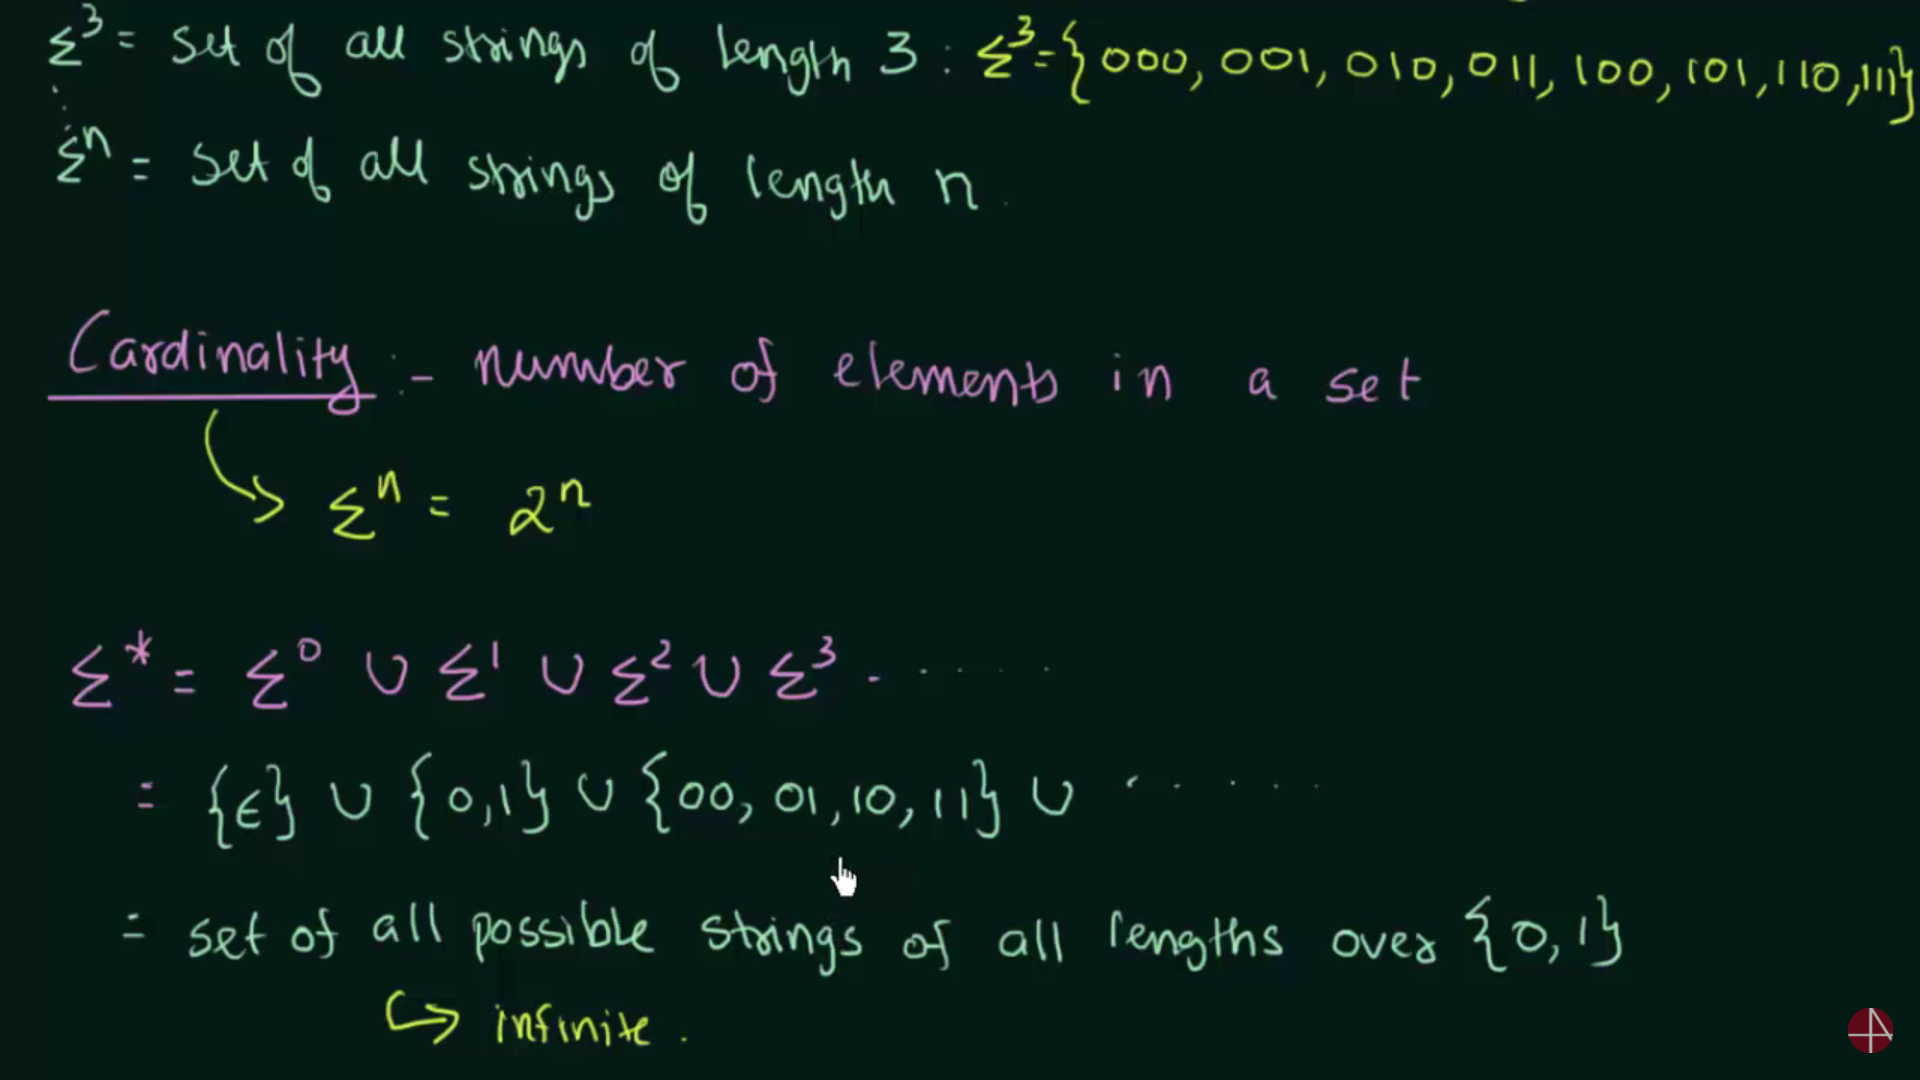 Σ³ = set of all strings of length 3 : Σ³ = {000, 001, 010, 011, 100, 101, 110, 111}
⋮
Σⁿ = set of all strings of length n
Cardinality :- number of elements in a set
↳ Σⁿ = 2ⁿ
Σ* = Σ⁰ ∪ Σ¹ ∪ Σ² ∪ Σ³ . . . . . .
= {ϵ} ∪ {0,1} ∪ {00, 01, 10, 11} ∪ . . . . .
= set of all possible strings of all lengths over {0, 1}
↳ infinite .